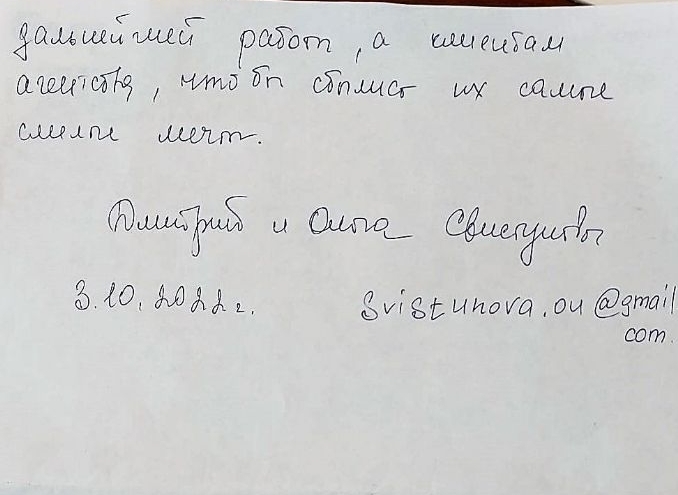 дальнейшей работы, а клиентам
агентства, что бы сбылись их самые
смелые мечты.
Дмитрий и Ольга Свистуновы
3.10.2022г. svistunova.ou@gmail
com.